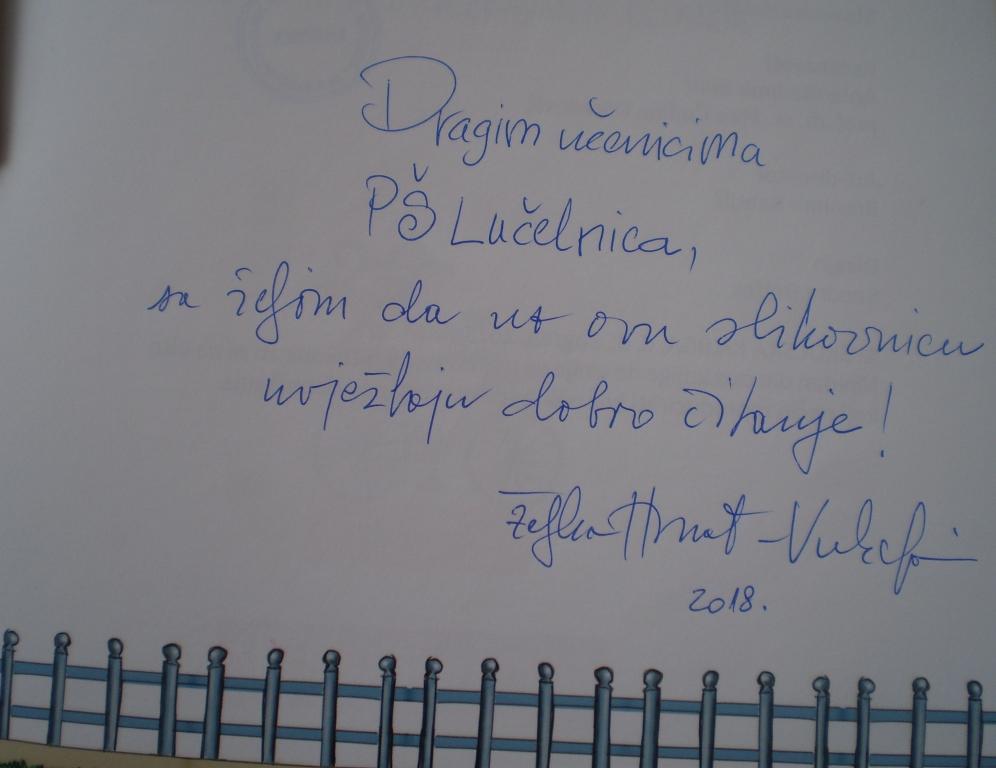 Dragim učenicima
PŠ Lučelnica,
sa željom da uz ovu slikovnicu
uvježbaju dobro čitanje!
Željka Horvat-Vukelja
2018.